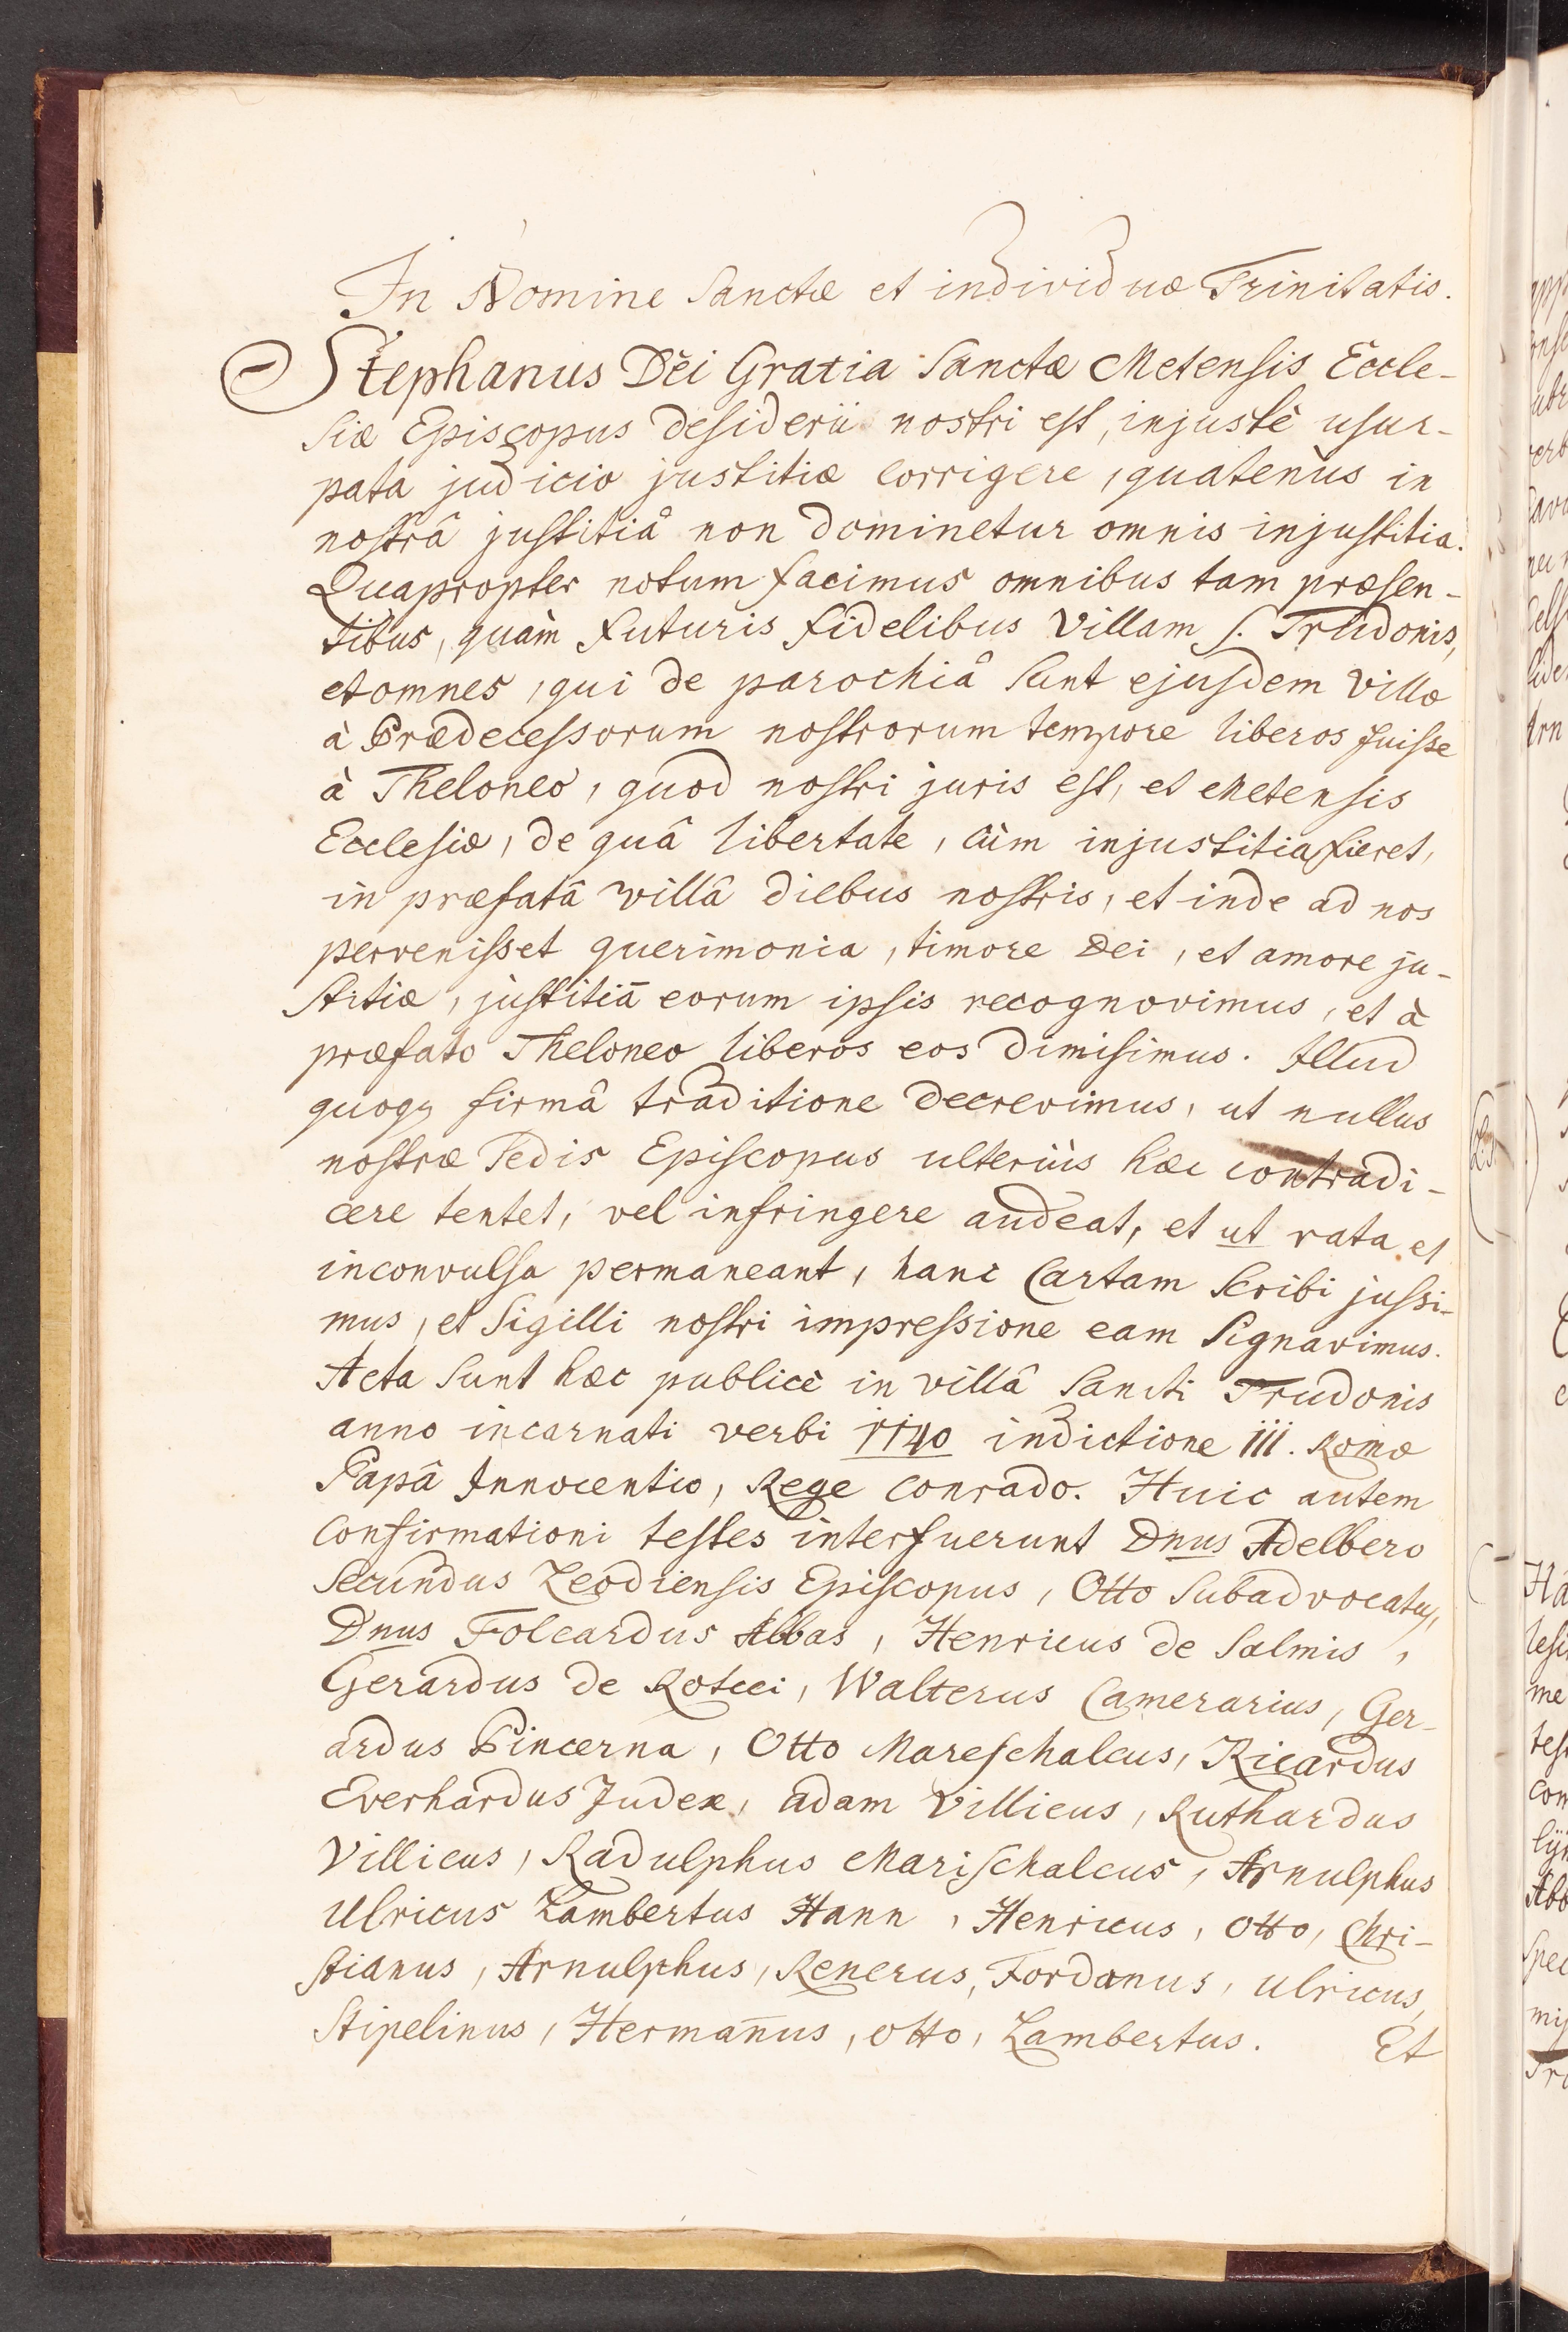 In Nomine Sanctæ et individuæ Trinitatis.
Stephanus Dei Gratia Sanctæ Metensis Eccle-
siæ Episcopus desiderii nostri est, injustè usur-
pata judicio justitiæ corrigere, quatenus in
nostrâ justitiâ non dominetur omnis injustitia.
Quapropter notum facimus omnibus tam præsen-
tibus, quàm futuris fidelibus villam S. Trudonis,
et omnes, qui de parochiâ sunt ejusdem villæ
à Prædecessorum nostrorum tempore liberos fuisse
à Theloneo, quod nostri juris est, et Metensis
Ecclesiæ, de quâ libertate, cùm injustitia fieret,
in præfatâ villâ diebus nostris, et inde ad nos
pervenisset querimonia, timore Dei, et amore ju-
stitiæ, justitiā eorum ipsis recognovimus, et à
præfato Theloneo liberos eos dimisimus. Illud
quoqz firmâ traditione decrevimus, ut nullus
nostræ Sedis Episcopus ulteriùs hæc contradi-
cere tentet, vel infringere audeat, et ut rata et
inconvulsa permaneant, hanc Cartam scribi jussi-
mus, et Sigilli nostri impressione eam signavimus.
Acta sunt hæc publicè in villâ Sancti Trudonis
anno incarnati verbi 1140 indictione III. Romæ
Papâ Innocentio, Rege Conrado. Huic autem
confirmationi testes interfuerunt Dnus Adelbero
secundus Leodiensis Episcopus, Otto Subadvocatus,
Dnus Folcardus Abbas, Henricus de Salmis,
Gerardus de Rotcei, Walterus Camerarius, Ger-
ardus Pincerna, Otto Mareschalcus, Ricardus
Everhardus Judex, Adam Villicus, Ruthardus
Villicus, Radulphus Marischalcus, Arnulphus
Ulricus Lambertus Hann, Henricus, Otto, Chri-
stianus, Arnulphus, Renerus, Fordanus, Ulricus,
Stipelinus, Hermañus, Otto, Lambertus. Et